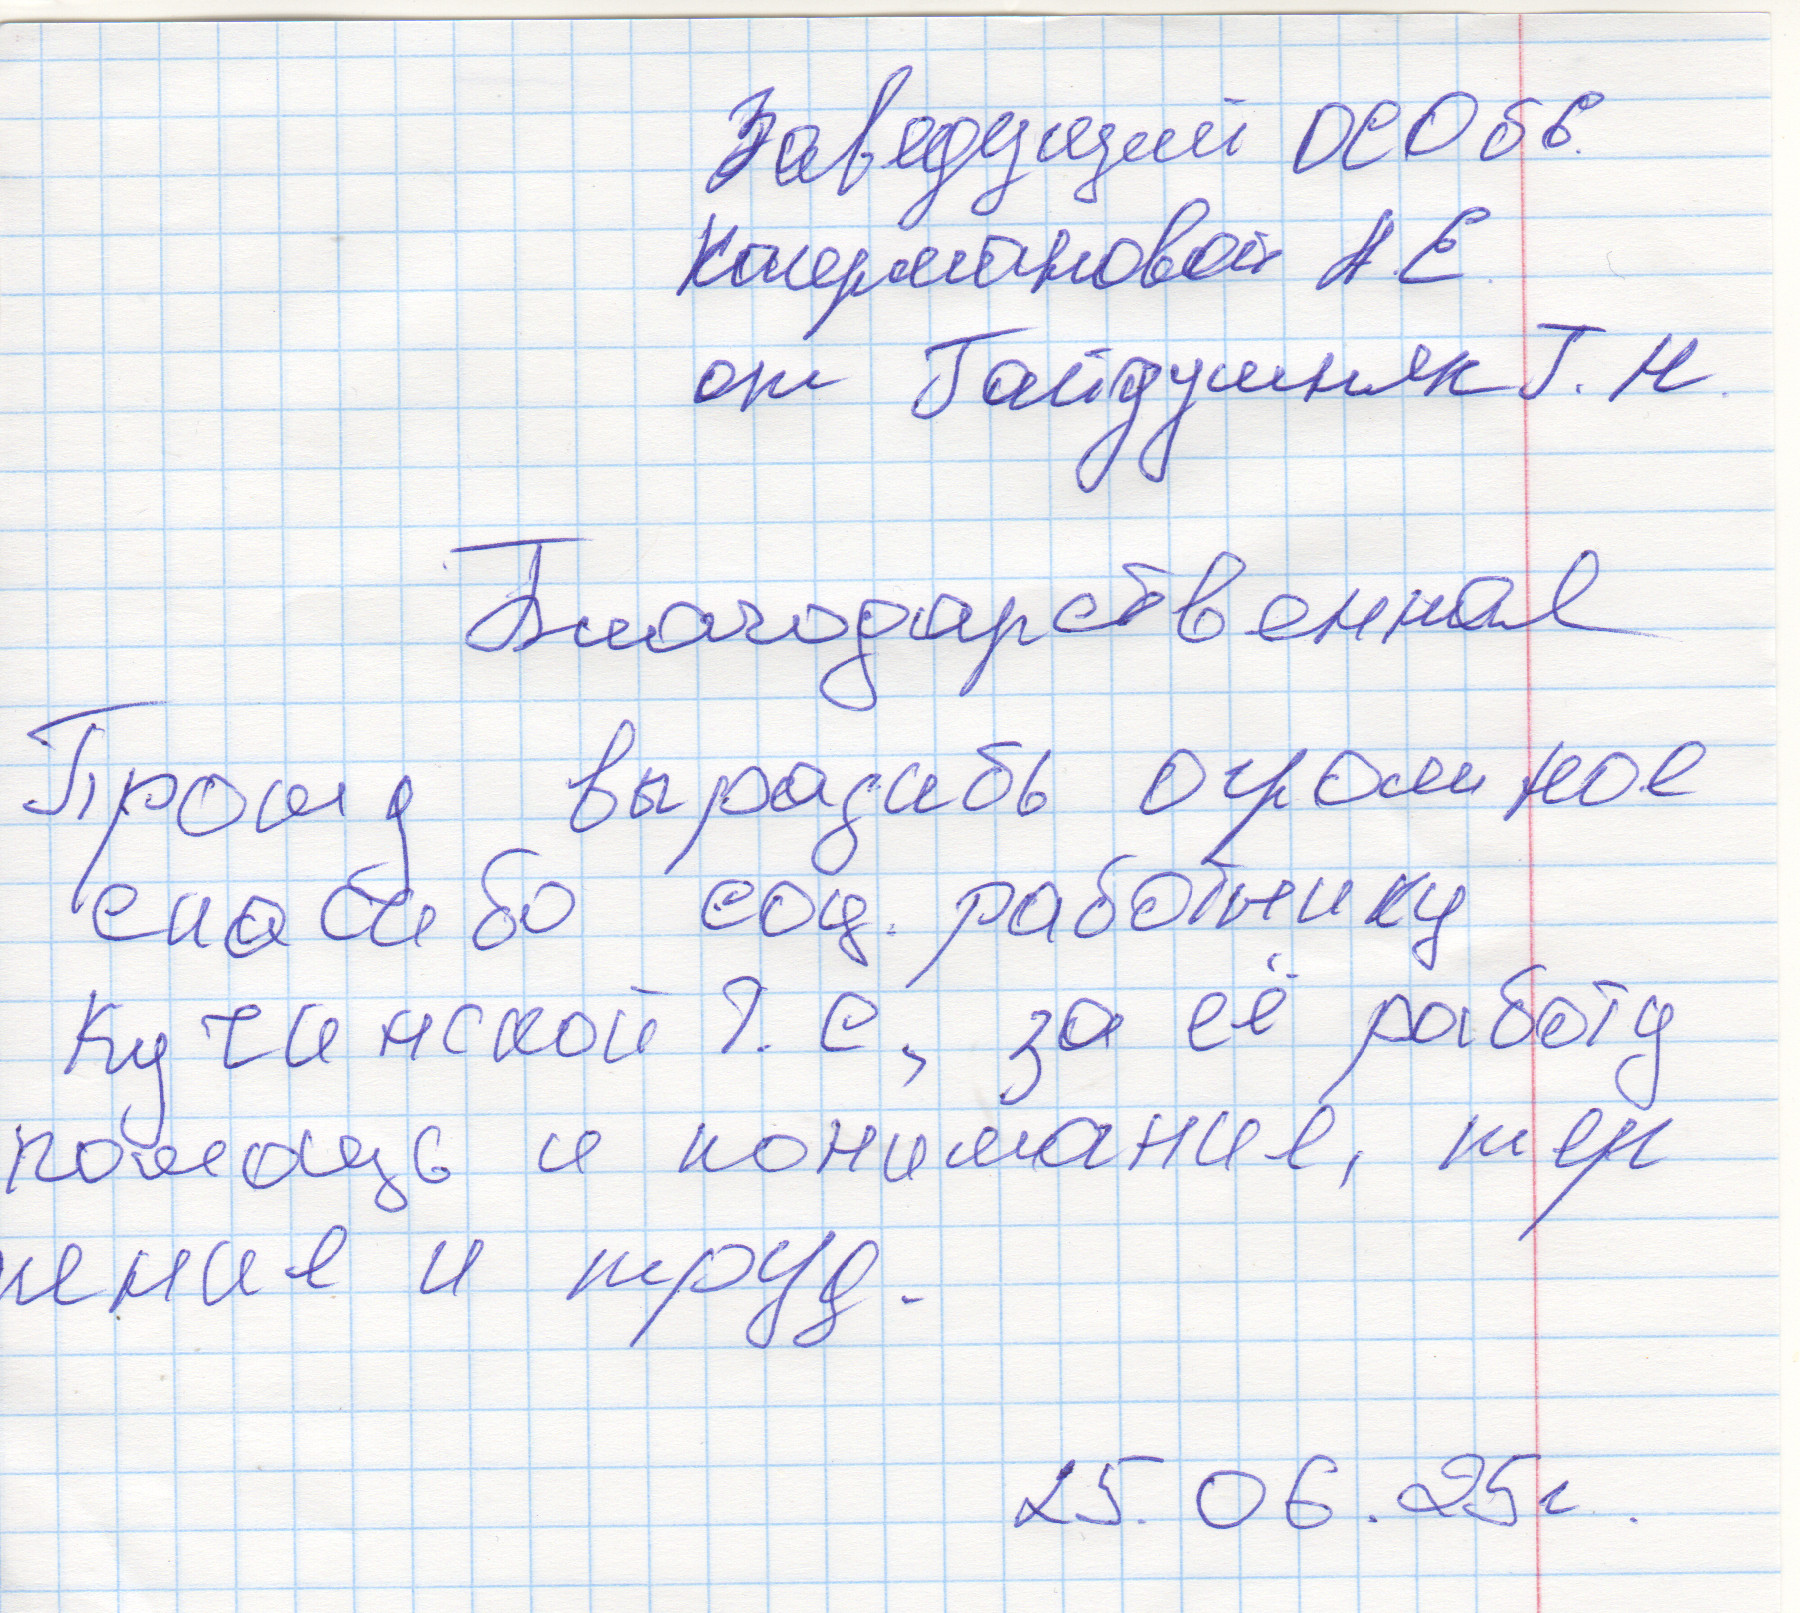 Заведующий ОСОбс.
Кацермановой А.Е.
от Гайдушняк Г.Н.
Благодарственная
Прошу выразить огромное
спасибо соц. работнику
Кучинской Г.С, за её работу
помощь и понимание, терп
пение и труд.
25.06.25г.